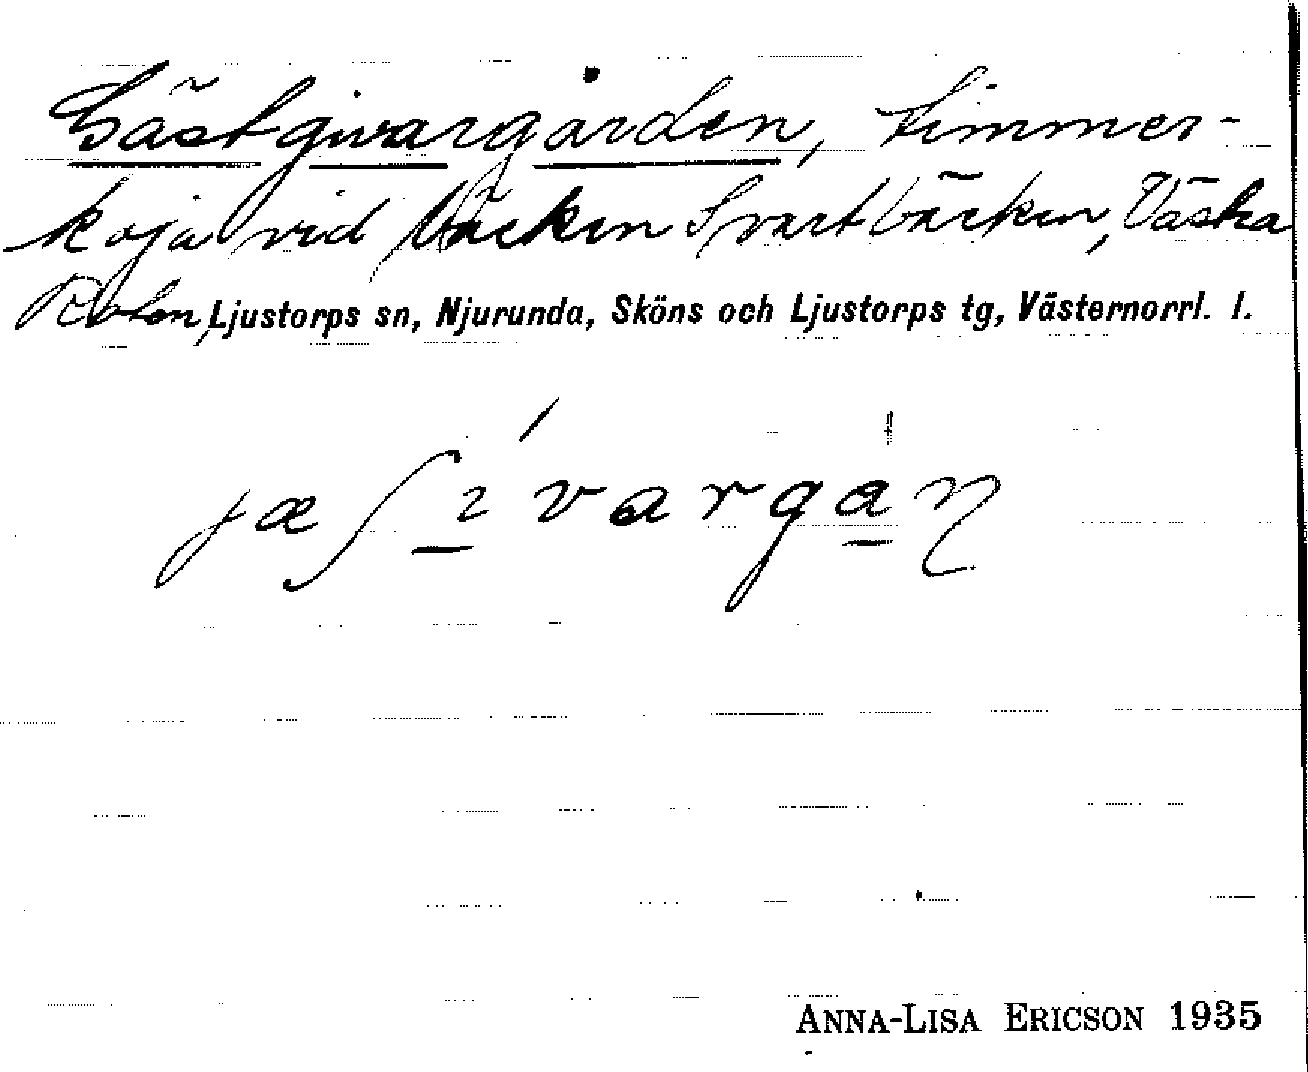 Gästgivargården, timmer-
koja vid bäcken Svartbäcken, Västra
Rolon, Ljustorps sn, Njurunda, Sköns och Ljustorps tg, Västernorrl. l.
jæʃɩvargaɳ
ANNA-LISA ERICSON 1935